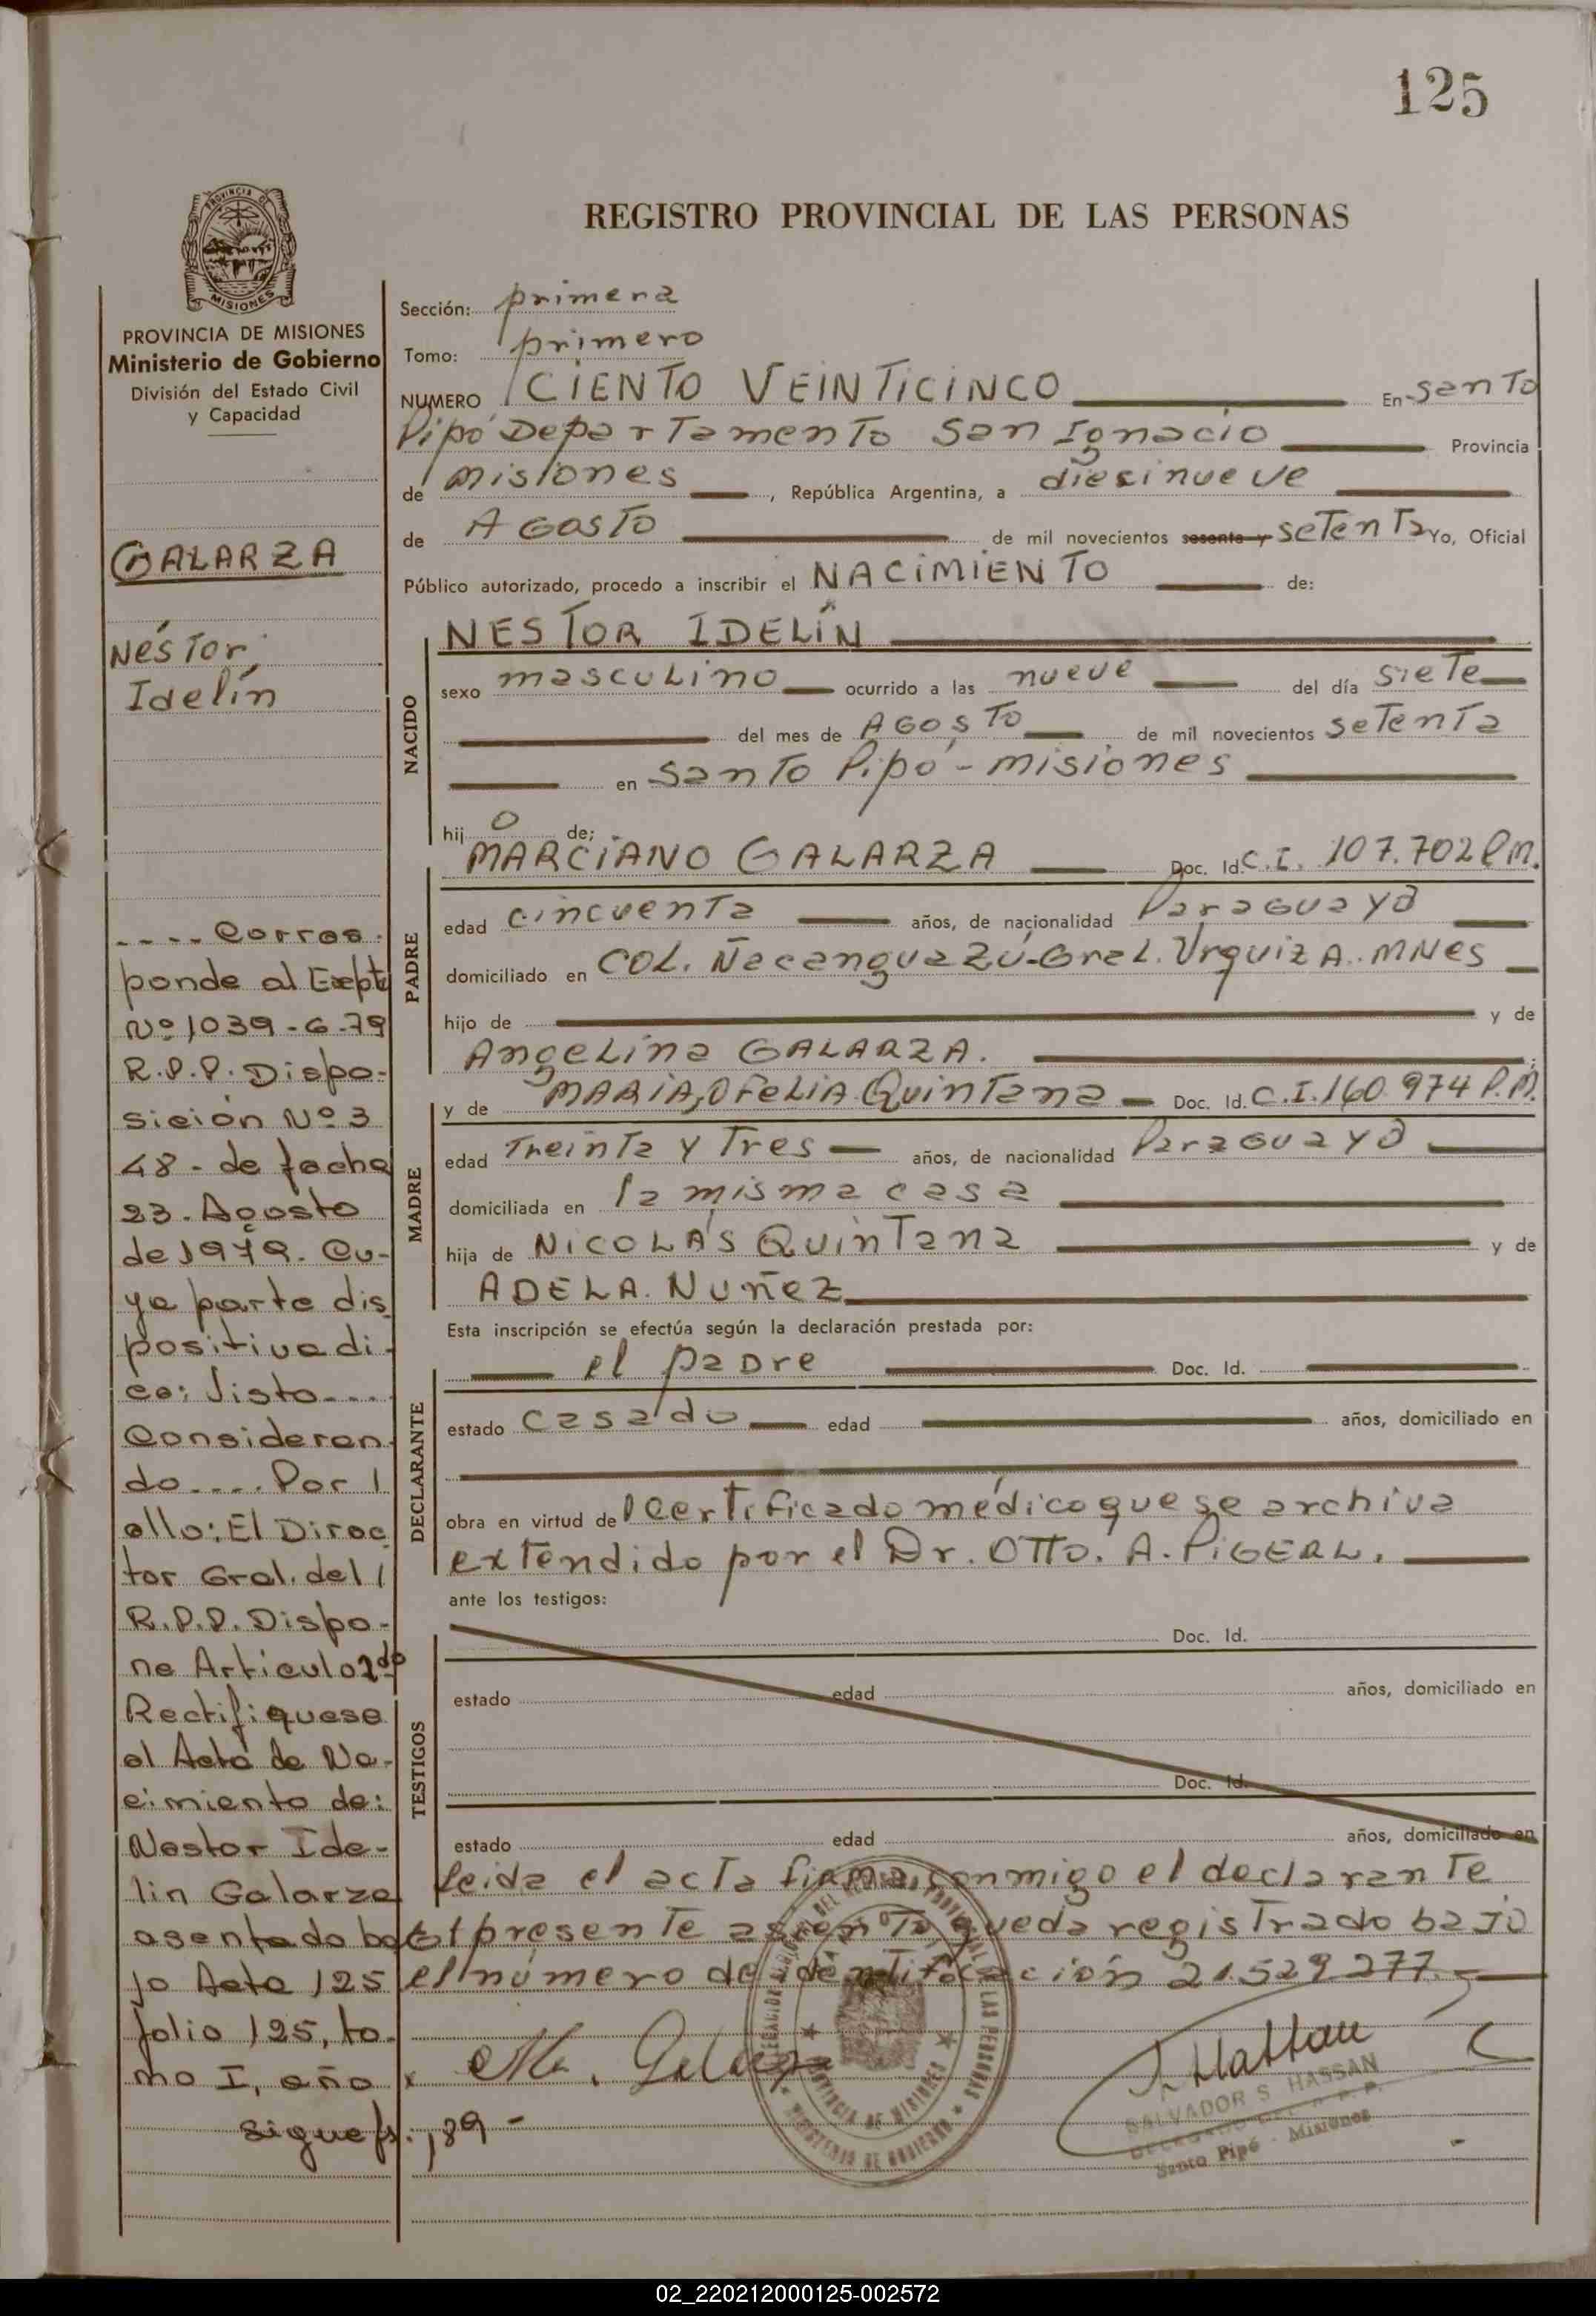 125
PROVINCIA DE
MISIONES
REGISTRO PROVINCIAL DE LAS PERSONAS
PROVINCIA DE MISIONES
Ministerio de Gobierno
División del Estado Civil
y Capacidad
GALARZA
Néstor
Idelín
.... Corres-
ponde al Expte
Nº 1039-G-79
R.P.P. Dispo-
sición Nº 3
48 - de fecha
23. Agosto
de 1979. Cu-
ya parte dis
positiva di-
ce: Visto....
Consideran-
do.... Por l
ello: El Direc
tor Gral. del l
R.P.P. Dispo-
ne Articulo 2do
Rectifiquese
el Acta de Na-
cimiento de:
Nestor Ide-
lin Galarza
asentado ba
jo Acta 125
folio 125, to-
mo I, año
sigue fs. 189-
Sección: primera
Tomo: primero
NUMERO CIENTO VEINTICINCO En Santo
Pipó Departamento San Ignacio Provincia
de Misiones, República Argentina, a diecinueve
de AGOSTO de mil novecientos sesenta y SETENTA Yo, Oficial
Público autorizado, procedo a inscribir el NACIMIENTO de:
NACIDO
NESTOR IDELÍN
sexo masculino ocurrido a las nueve del día siete
del mes de AGOSTO de mil novecientos setenta
en Santo Pipó - misiones
hijo de:
PADRE
MARCIANO GALARZA Doc. Id. C.I. 107.702 P.M.
edad cincuenta años, de nacionalidad Paraguaya
domiciliado en COL. Ñacanguazú-Gral. Urquiza. MNes
hijo de y de
Angelina GALARZA.
MADRE
y de MARIA OFELIA Quintana Doc. Id. C.I. 160.974 P.M.
edad Treinta y Tres años, de nacionalidad Paraguaya
domiciliada en la misma casa
hija de NICOLÁS Quintana y de
ADELA NUÑEZ
Esta inscripción se efectúa según la declaración prestada por:
DECLARANTE
el padre Doc. Id.
estado casado edad años, domiciliado en
obra en virtud del certificado médico que se archiva
extendido por el Dr. OTTO. A. PIGERL.
ante los testigos:
TESTIGOS
Doc. Id.
estado edad años, domiciliado en
Doc. Id.
estado edad años, domiciliado en
Leida el acta firma conmigo el declarante
el presente asiento queda registrado bajo
el número de identificación 21.529.277.-
M. Galarza
SALVADOR S. HASSAN
DELEGADO DEL R.P.P.
Santo Pipó - Misiones
PROVINCIA DE MISIONES
MINISTERIO DE GOBIERNO
02_220212000125-002572